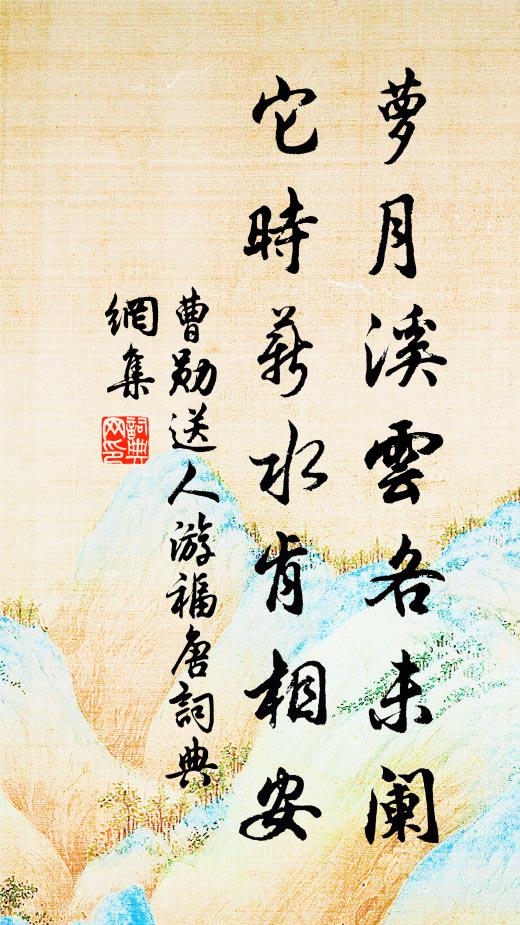 萝月溪雲各未阑
它時薪水肯相安
曹勛送人游福唐詞典
網集
詞典網印